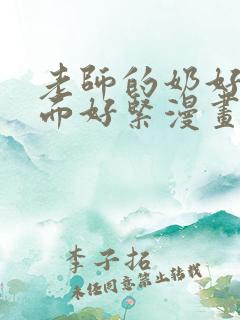 老師的奶好
而好緊漫畫
李子拓
未经同意禁止转载